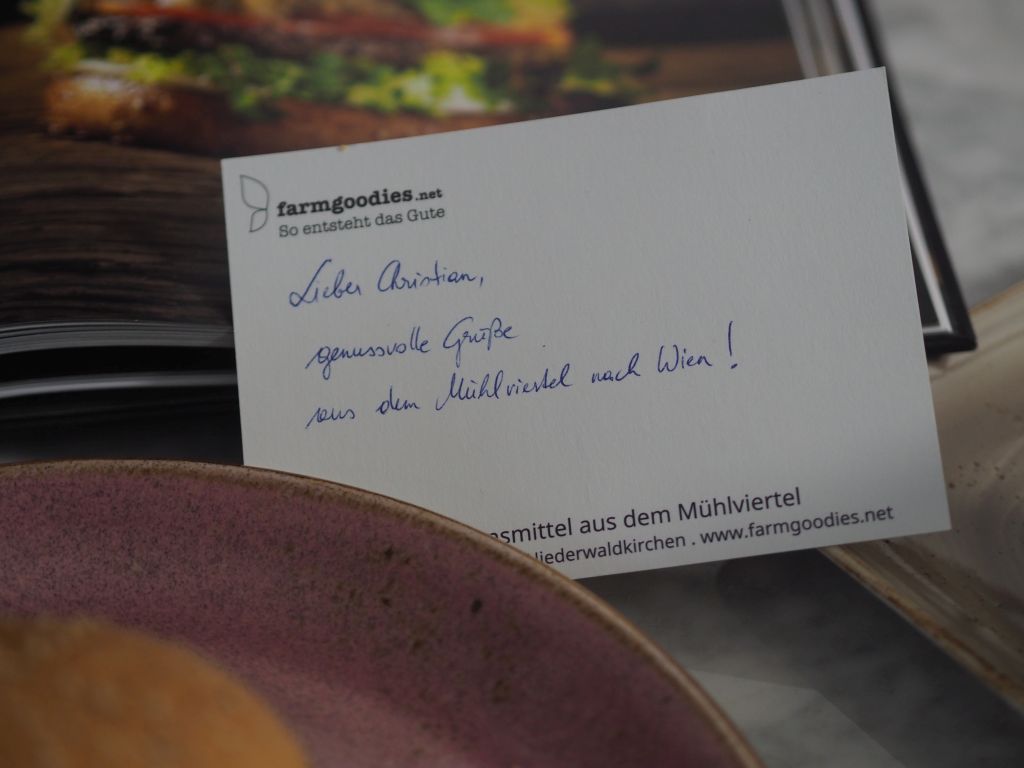 farmgoodies.net
So entsteht das Gute
Lieber Christian,
genussvolle Grüße
aus dem Mühlviertel nach Wien!
nsmittel aus dem Mühlviertel
liederwaldkirchen . www.farmgoodies.net